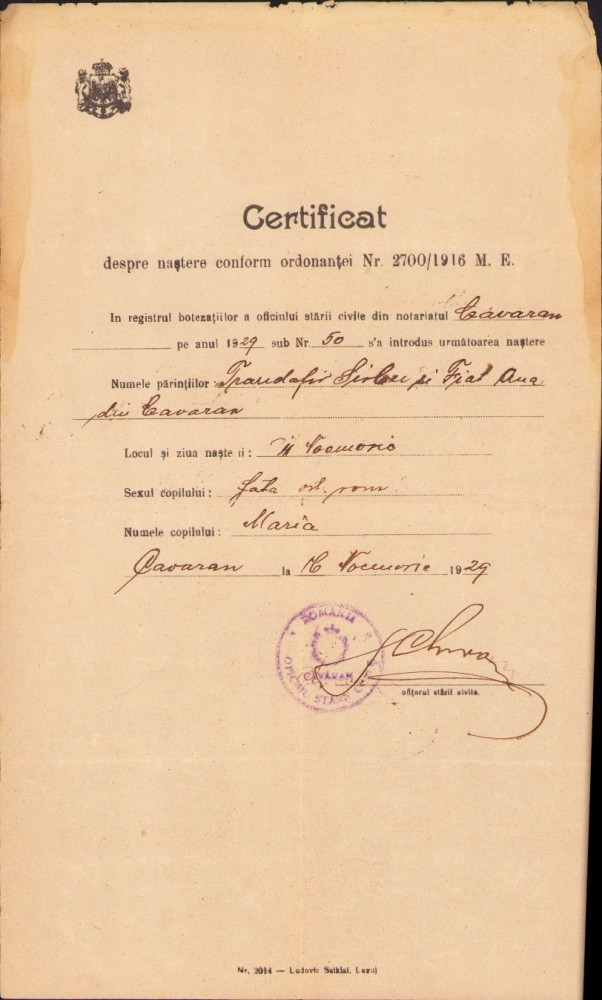 Certificat
despre naștere conform ordonanței Nr. 2700/1916 M. E.
In registrul botezaților a oficiului stării civile din notariatul Cavaran
pe anul 1929 sub Nr. 50 s'a introdus următoarea naștere
Numele părinților Trandafir și Ana
din Cavaran
Locul și ziua naște ii: Noemvrie
Sexul copilului: fata ort. rom
Numele copilului: Maria
Cavaran la 16 Noemvrie 1929
ROMANIA
CAVARAN
OFICIUL STĂRII CIVILE
ofițerul stării civile.
Nr. 2014 — Ludovic Lugoj